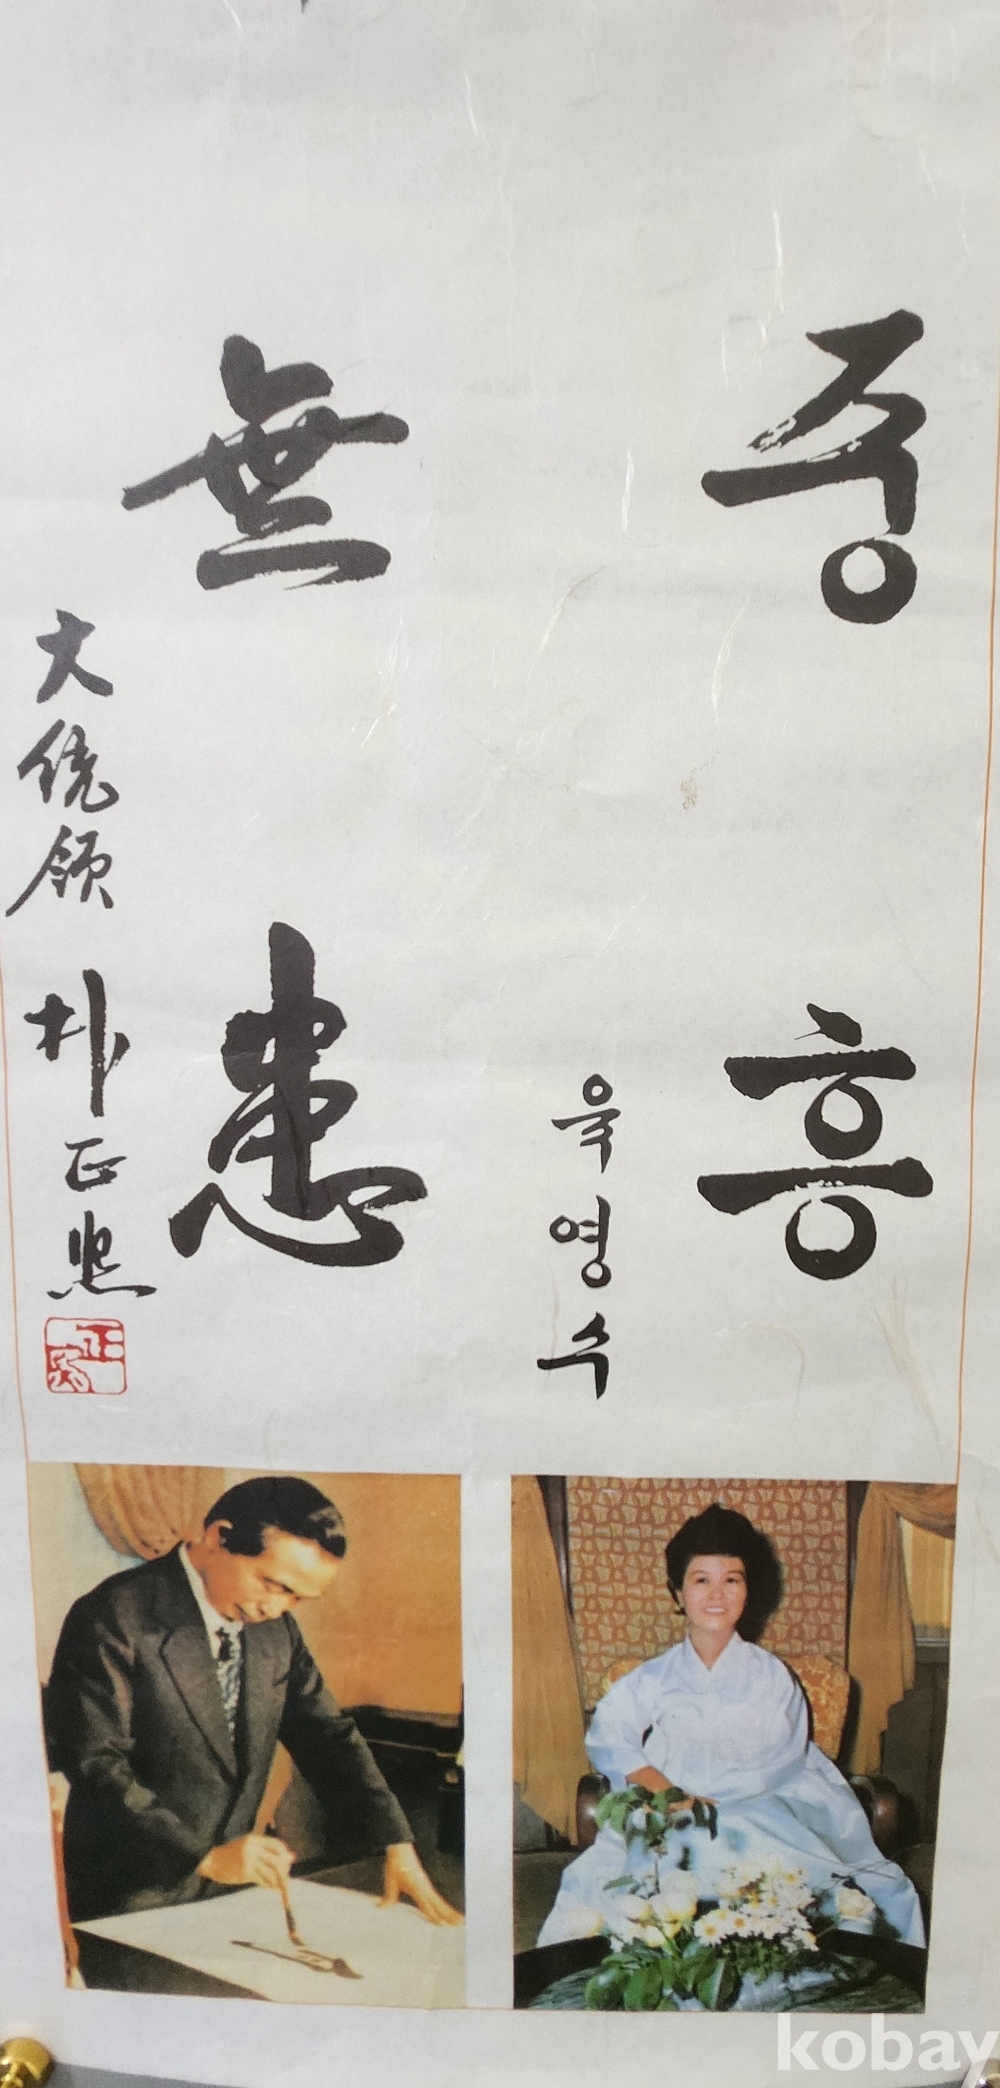 중흥
육영수
無患
大統領 朴正熙
kobay